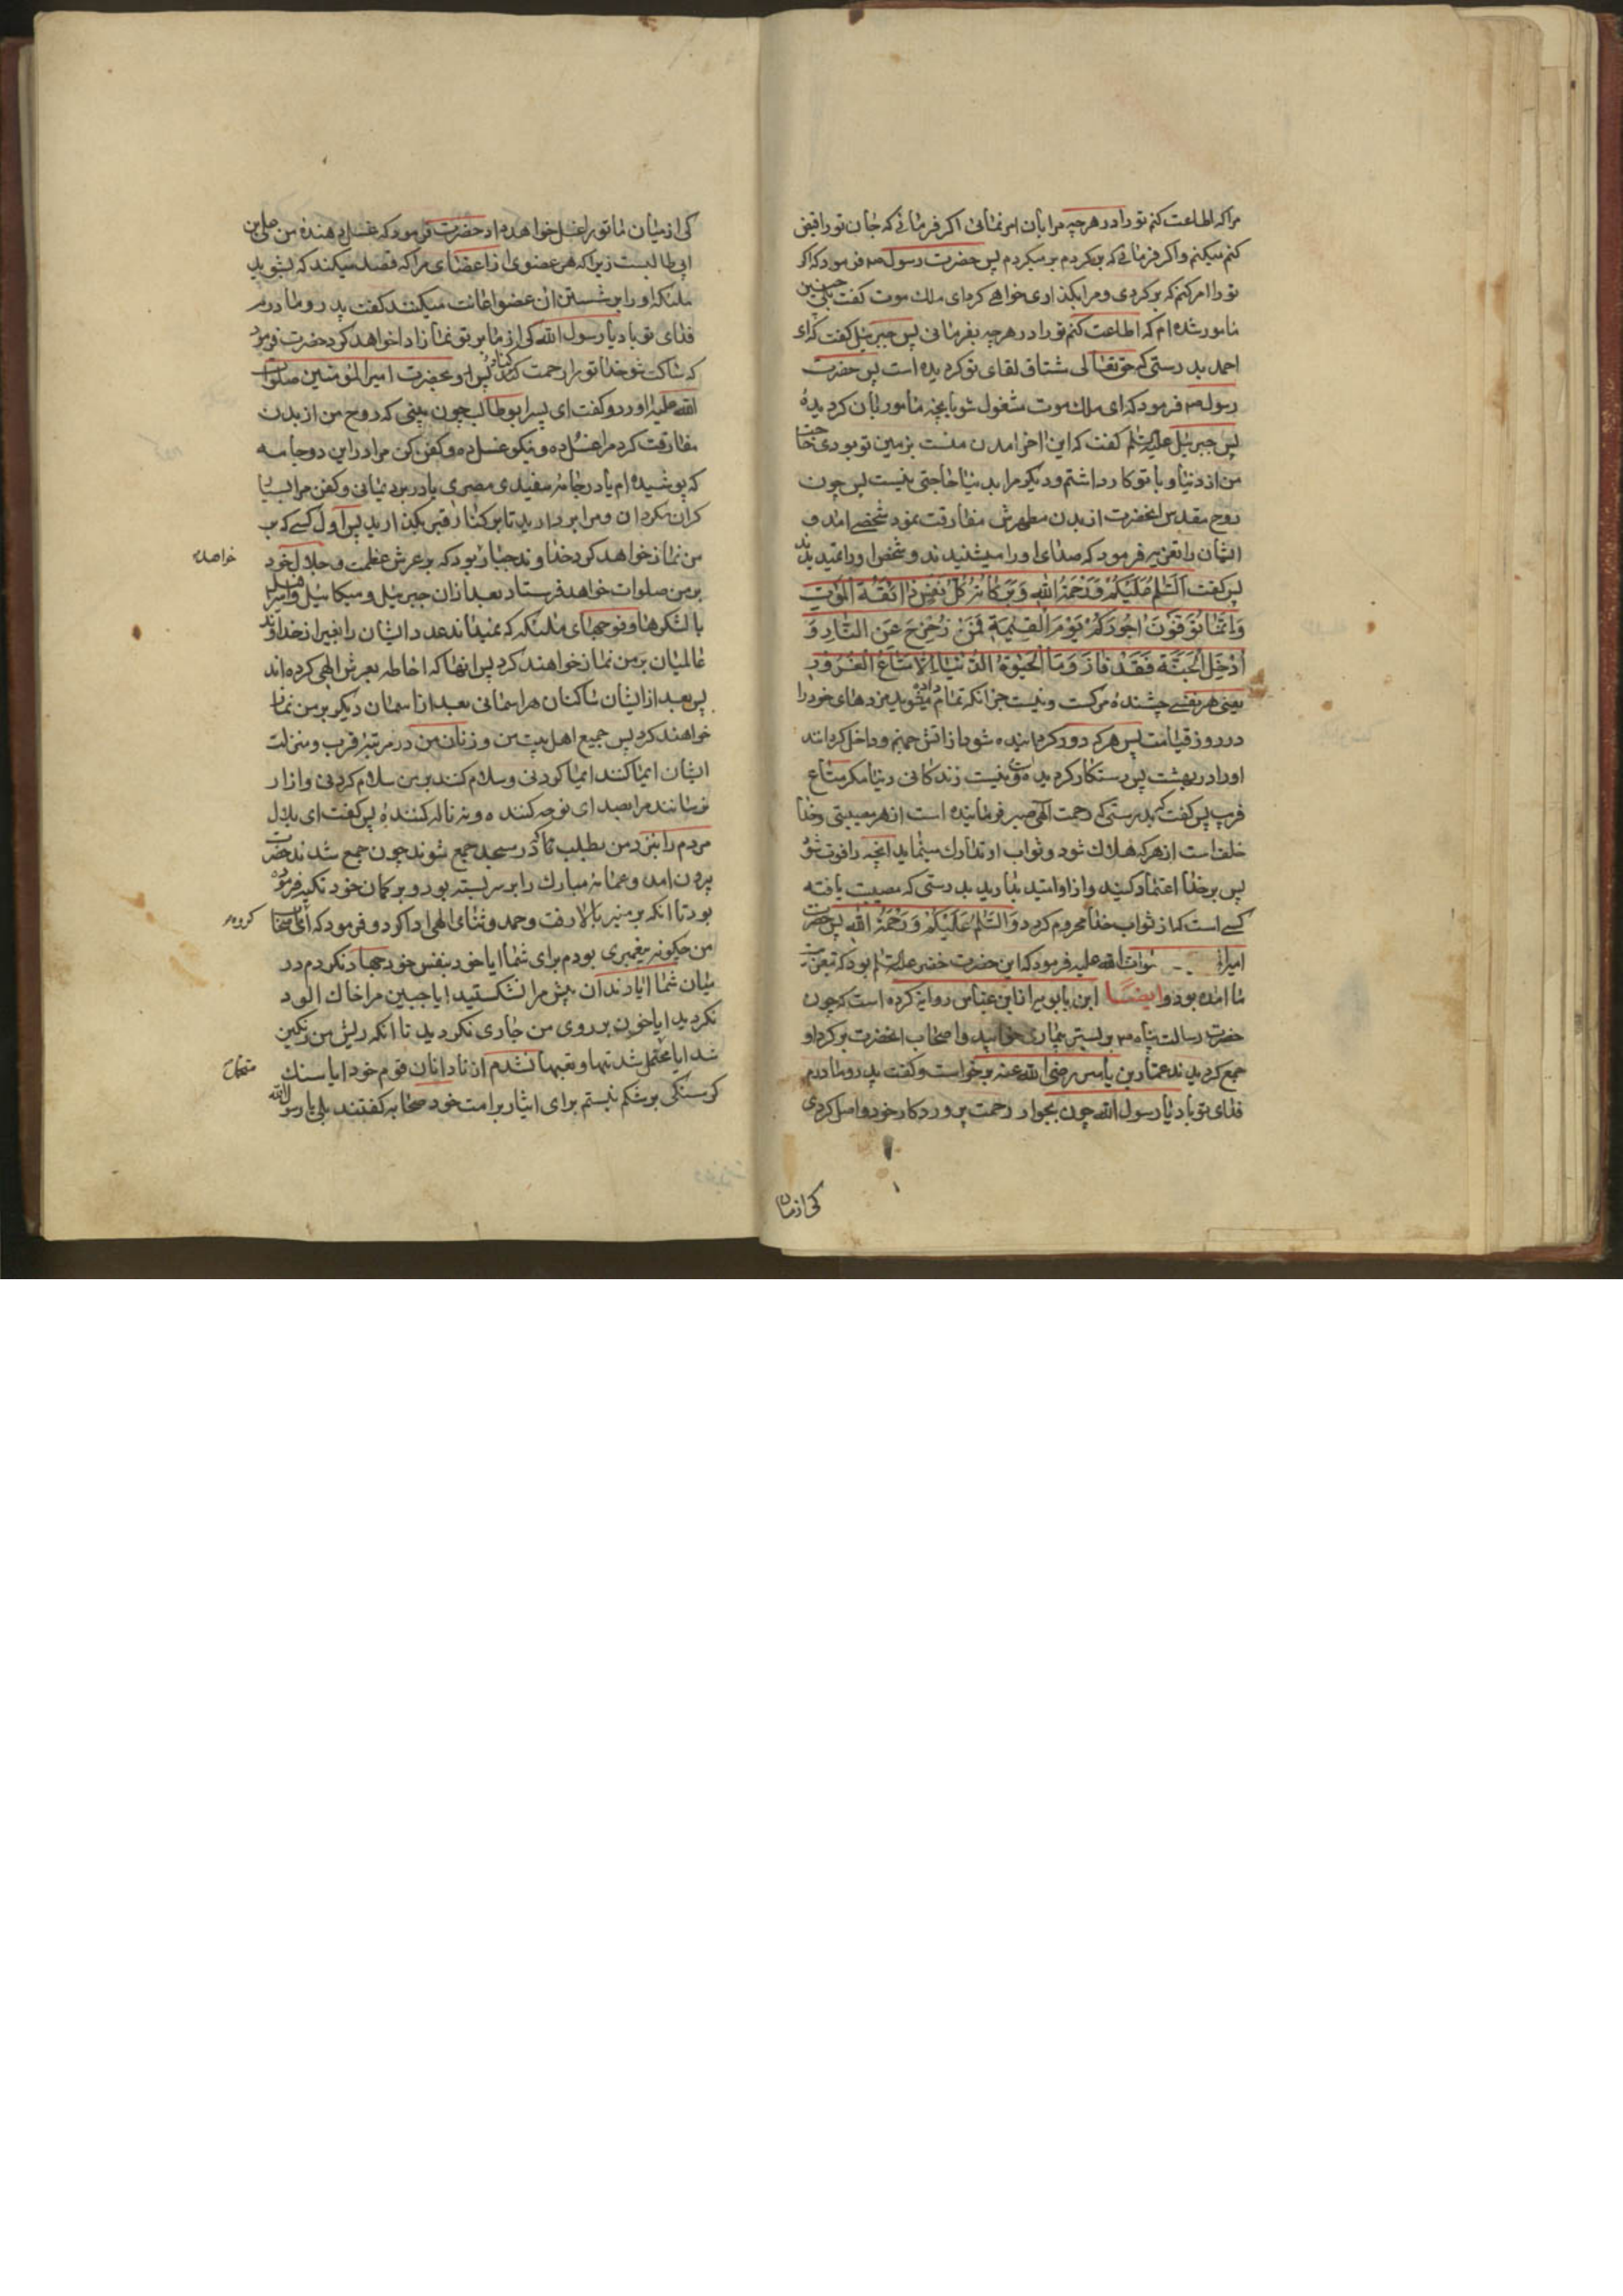 مرا که اطاعت کنم تو را در هر چه مرا بان امر نمائی اگر فرمائی که جان تو را قبض
کنم میکنم و اگر فرمائی که برگردم بر میگردم پس حضرت رسول ص فرمود که اگر
تو را امر کنم که برگردی و مرا بگذاری خواهی کرد ای ملک موت گفت بلی چنین
مامور شده ام که اطاعت کنم تو را در هر چه بفرمائی پس جبرئیل گفت که ای
احمد بدرستی که حقتعالی مشتاق لقای تو گردیده است پس حضرت
رسول ص فرمود که ای ملک موت مشغول شو بآنچه مامور بان گردیدهٔ
پس جبرئیل علیه السلم گفت که این اخر امدن منست بزمین تو بودی حاجت
من از دنیا و با تو کار داشتم و دیگر مرا بدنیا حاجتی نیست پس چون
روح مقدس انحضرت از بدن مطهرش مفارقت نمود شخصی امد و
ایشان را تعزیه فرمود که صدای او را میشنیدند و شخص او را نمیدیدند
پس گفت اَلسَّلٰمُ عَلَیْکُمْ وَرَحْمَةُ اللهِ وَبَرَکاتُهُ کُلُّ نَفْسٍ ذٰائِقَةُ الْمَوْتِ
وَاِنَّمٰا تُوَفَّوْنَ اُجُورَکُمْ یَوْمَ الْقِیٰمَةِ فَمَنْ زُحْزِحَ عَنِ النّٰارِ وَ
اُدْخِلَ الْجَنَّةَ فَقَدْ فٰازَ وَمَا الْحَیٰوةُ الدُّنْیٰا اِلّٰا مَتٰاعُ الْغُرُورِ
یعنی هر نفسی چشندهٔ مرگست و نیست جز انکه تمام داده میشوید مزدهای خود را
در روز قیامت پس هر که دور گردانیده شود از اتش جهنم و داخل گردانند
او را در بهشت پس رستگار گردیده و نیست زندگانی دنیا مگر متاع
فریب پس گفت که بدرستی که رحمت الهی صبر فرماینده است از هر مصیبتی و خدا
خلف است از هر که هلاک شود و ثواب او تدارک مینماید انچه را فوت شود
پس بر خدا اعتماد کنید و از او امید بدارید بدرستی که مصیبت یافته
کسی است که از ثواب خدا محروم گردد وَالسَّلٰمُ عَلَیْکُمْ وَرَحْمَةُ اللهِ پس حضرت
امیر صلوات الله علیه فرمود که این حضرت خضر علیه السلم بود که بتعزیت
ما امده بود و ایضاً ابن بابویه از ابن عباس روایة کرده است که چون
حضرت رسالت پناه ص بر بستر بیماری خوابید و اصحاب انحضرت بر گرد او
جمع گردیدند عمار بن یاسر رضی الله عنه برخواست و گفت پدر و مادرم
فدای تو باد یا رسول الله چون بجوار رحمت پروردکار خود واصل گردی
کی از میان
کی از میان ما تو را غسل خواهد داد حضرت فرمود که غسل دهندهٔ من علی بن
ابی طالبست زیرا که هر عضوی از اعضای مرا که قصد میکند که بشوید
ملئکه او را بر شستن ان عضو اعانت میکنند گفت پدر و مادرم
فدای تو باد یا رسول الله کی از ما بر تو نماز ادا خواهد کرد حضرت فرمود
که ساکت شو خدا تو را رحمت کند پس رو بحضرت امیر المؤمنین صلوات
الله علیه اورد و گفت ای پسر ابوطالب چون بینی که روح من از بدن
مفارقت کرد مرا غسل ده و نیکو غسل ده و کفن کن مرا در این دو جامه
که پوشیده ام یا در جامهٔ سفیدی مصری یا در برد یمانی و کفن مرا بسیار
گران مگردان و مرا بردارید تا بر کنار قبر بگذارید پس اول کسی که بر
من نماز خواهد کرد خداوند جبار بود که بر عرش عظمت و جلال خود
بر من صلوات خواهد فرستاد بعد از ان جبرئیل و میکائیل و اسرافیل
با لشکرها و فوجهای ملئکه که نمیداند عدد ایشان را بغیر از خداوند
عالمیان بر من نماز خواهند کرد پس انها که احاطه بعرش الهی کرده اند
پس بعد از ایشان ساکنان هر اسمانی بعد از اسمان دیگر بر من نماز
خواهند کرد پس جمیع اهل بیت من و زنان من در مرتبهٔ قرب و منزلت
ایشان ایما کنند ایما کردنی و سلام کنند بر من سلام کردنی و ازار
نرسانند مرا بصدای نوحه کننده و نه ناله کنندهٔ پس گفت ای بلال
مردم را بنزد من بطلب تا که در مسجد جمع شوند چون جمع شدند حضرت
بیرون امد و عمامهٔ مبارک را بر سر بسته بود و بر کمان خود تکیه فرموده
بود تا انکه بر منبر بالا رفت و حمد و ثنای الهی ادا کرد و فرمود که ای اصحاب
من چگونه پیغمبری بودم برای شما ایا خود بنفس خود جهاد نکردم در
میان شما ایا دندان پیش مرا نشکستید ایا جبین مرا خاک الود
نکردید ایا خون بر روی من جاری نکردید تا انکه ریش من رنگین
شد ایا محتمل شدتها و تعبها نشدم از نادانان قوم خود ایا سنگ
گرسنگی بر شکم نبستم برای ایثار بر امت خود صحابه گفتند بلی یا رسول الله